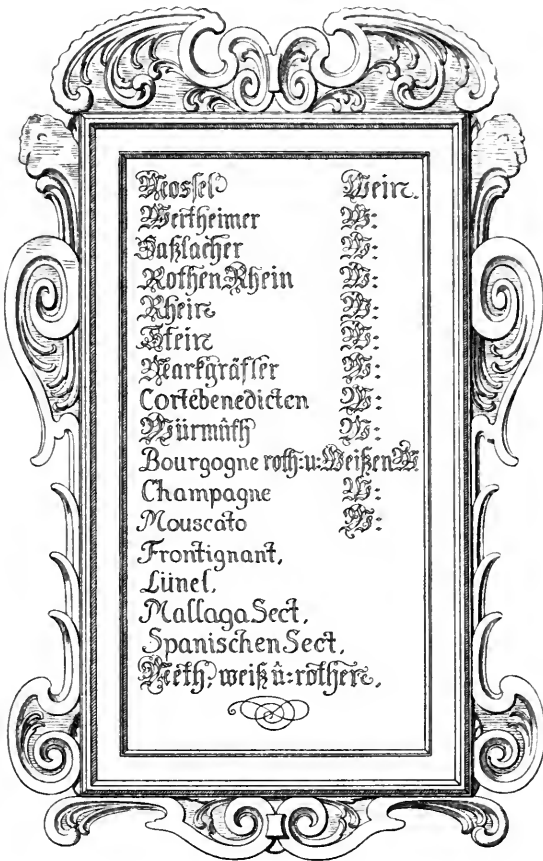 Mossel Wein.
Wertheimer W:
Haßlacher W:
Rothen Rhein W:
Rhein W:
Stein W:
Markgräfler W:
Cortébenedicten W:
Würmüth W:
Bourgogne roth: u: Weißen W
Champagne W:
Mouscato W:
Frontignant.
Lünel.
Mallaga Sect.
Spanischen Sect.
Meth, weiß û: rother.